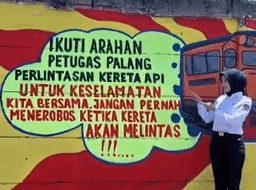 IKUTI ARAHAN
PETUGAS PALANG
PERLINTASAN KERETA API
UNTUK KESELAMATAN
KITA BERSAMA, JANGAN PERNAH
MENEROBOS KETIKA KERETA
AKAN MELINTAS
!!!